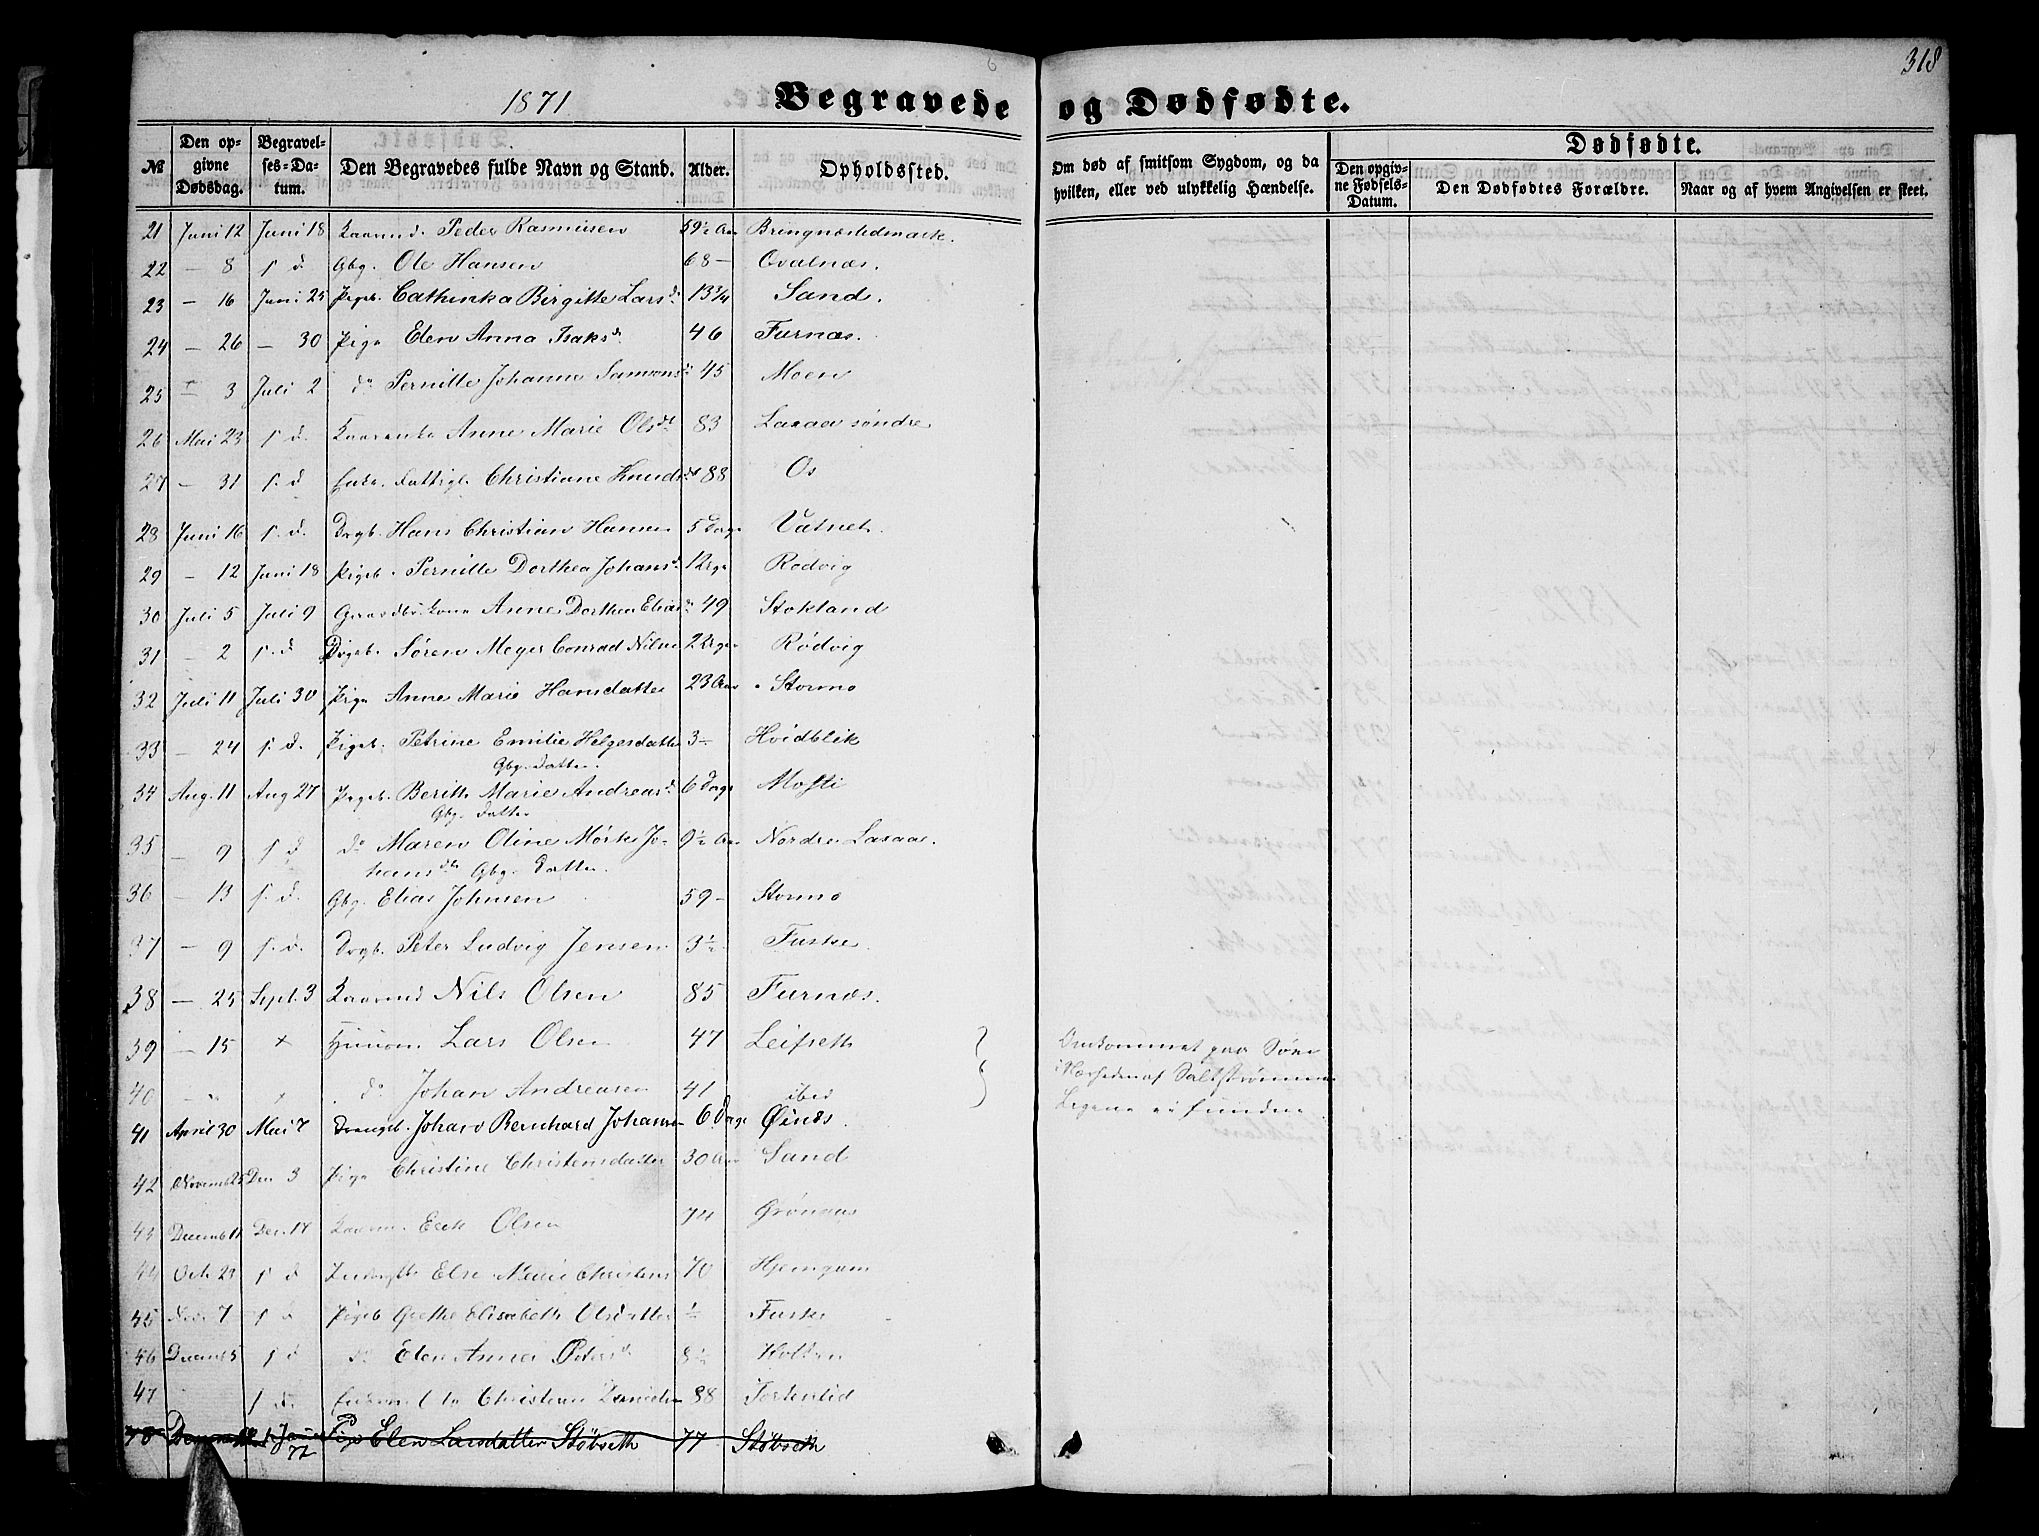 318
1871 Begravede og Dødfødte.
№ Den opgivne Dødsdag. Begravelses-Datum. Den Begravedes fulde Navn og Stand. Alder. Opholdssted. Om død af smitsom Sygdom, og da hvilken, eller ved ulykkelig Hændelse. Dødfødte. Den opgivne Fødsels-Datum. Den Dødfødtes Forældre. Naar og af hvem Angivelsen er skeet.
21 Juni 12 Juni 18 Kaarmd. Peder Rasmussen 59½ Aar
22 — 8 s. d. Gbg. Ole Hansen 68 — Evalnæs.
23 — 16 Juni 25 Pigeb. Cathinka Birgitte Larsd. 13¾ Sand.
24 — 26 — 30 Pige Elen Anna Isaksd. 46 Furnæs.
25 — 3 Juli 2 do Pernille Johanna 45 Moen
26 Mai 23 s. d. Anne Marie Olsdt 83 Laxaa søndre
27 — 31 s. d. Christiane Knudsdt 88 Os
28 Juni 16 s. d. Drgb. Hans Christian Hansen 5 Dage Vatnet.
29 — 12 Juni 18 Pigeb. Pernille Dorthea Johansd. Rødvig
30 Juli 5 Juli 9 Anne Dorthea Eliasd. 49 Stokland
31 — 2 s. d. Drgeb. Søren Meyer Conrad Rødvig
32 Juli 11 Juli 30 Pige Anne Marie Hansdatter 23 Aar Stormo
33 — 24 s. d. Pigeb. Petrine Emilie Helgesdatter 3 — Hvidblik
Gbg. Datter.
34 Aug. 11 Aug 27 Pigeb. Berith Marie Andreasd. 6 Dage Mosti
Gbg. Datter
35 — 9 s d do Maren Oline Mørk Jo- 9½ Aar Nordre Laxaae.
hansdtr Gbg. Datter.
36 — 13 s. d. Gbg. Elias Johnsen 59 — Stormo
37 — 9 s. d. Drgb. Peter Ludvig Jensen 3½ Fuske.
38 — 25 Sept. 3 Kaarmd Nils Olsen 85 Furnæs.
39 — 15 + Lars Olsen 47 Leifseth Omkommet paa Søen
40 — " + do Johan Andreasen 41 ibid i Nærheden af Saltstrømmen
41 April 30 Mai 7 Drengeb. Johan Bernhard Johansen 6 Dage Øinæs. Ligene ei fundne.
42 Novemb 25 Dec 3 Pige Christine Christensdatter 30 Aar Sand
43 Decemb 11 Dec. 17 Erik Olsen 74 Grønaas
44 Oct. 23 s d Else Marie Christens 70 Hjemgam
45 Nov. 7 s d Pigeb Grethe Elisabeth Olsdatter ½ Fuske
46 Decemb 5 s d do Elen Anna 8½
47 s. d. Christian 88
48 Januar 72 Pige Elen Larsdatter Støbseth 77 Støbseth